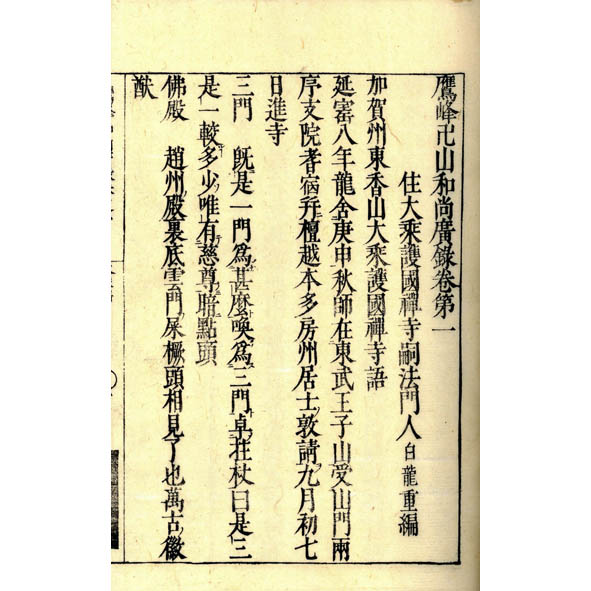 鷹峰卍山和尚廣錄卷第一
住大乘護國禪寺嗣法門人白龍重編
加賀州東香山大乘護國禪寺語
延寶八年龍舍庚申秋師在東武王子山受山門兩
序支院耆宿幷檀越本多房州居士敦請九月初七
日進寺
三門 既是一門爲甚麼喚爲三門卓拄杖曰是三
是一較多少唯有慈尊暗點頭
佛殿 趙州殿裏底雲門屎橛頭相見了也萬古徽
猷